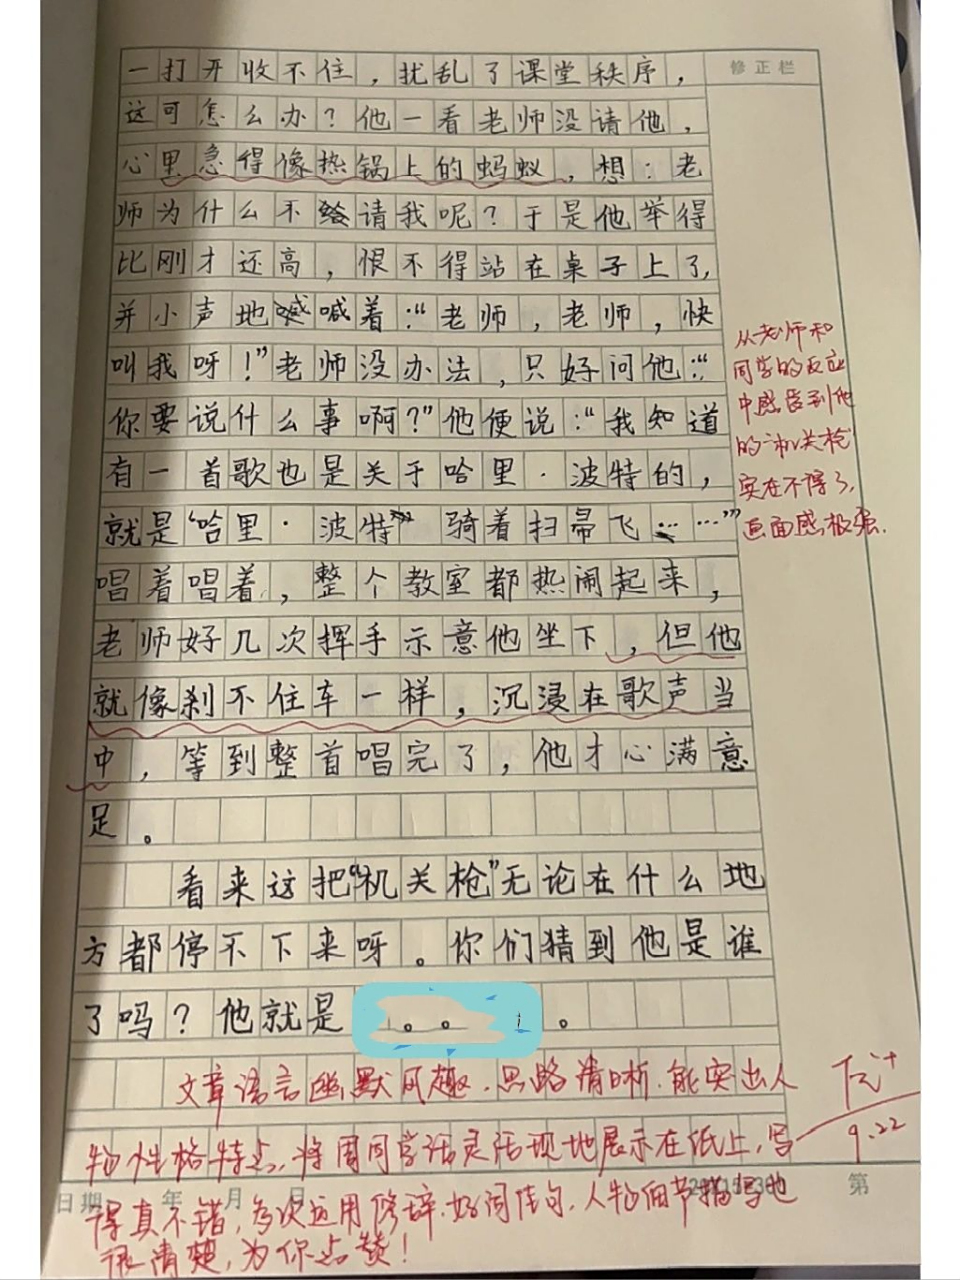 修正栏
一打开收不住，扰乱了课堂秩序，
这可怎么办？他一看老师没请他，
心里急得像热锅上的蚂蚁，想：老
师为什么不请我呢？于是他举得
比刚才还高，恨不得站在桌子上了，
并小声地喊着：“老师，老师，快
叫我呀！”老师没办法，只好问他：“
你要说什么事啊？”他便说：“我知道
有一首歌也是关于哈里·波特的，
就是‘哈里·波特’骑着扫帚飞……”
唱着唱着，整个教室都热闹起来，
老师好几次挥手示意他坐下，但他
就像刹不住车一样，沉浸在歌声当
中，等到整首唱完了，他才心满意
足。
看来这把“机关枪”无论在什么地
方都停不下来呀。你们猜到他是谁
了吗？他就是 。。 。
从老师和
同学的反应
中感受到他
的“机关枪”
实在不得了，
画面感极强.
文章语言幽默风趣.思路清晰.能突出人
物性格特点，将周同学活灵活现地展示在纸上，写
得真不错，多次运用修辞.好词佳句.人物细节描写也
很清楚，为你点赞！
优+
9.22
日期 年 月 日
第